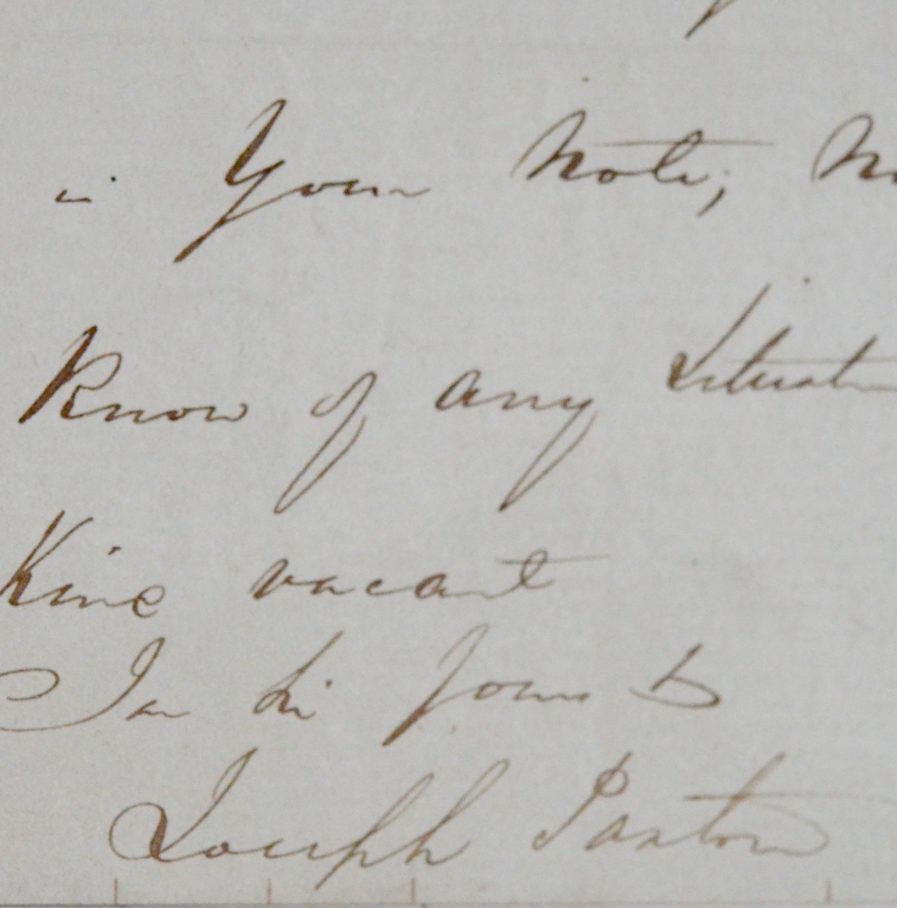 in Your Note; No
Know of any Situation
Kine vacant
I am Sir Yours &
Joseph Paxton